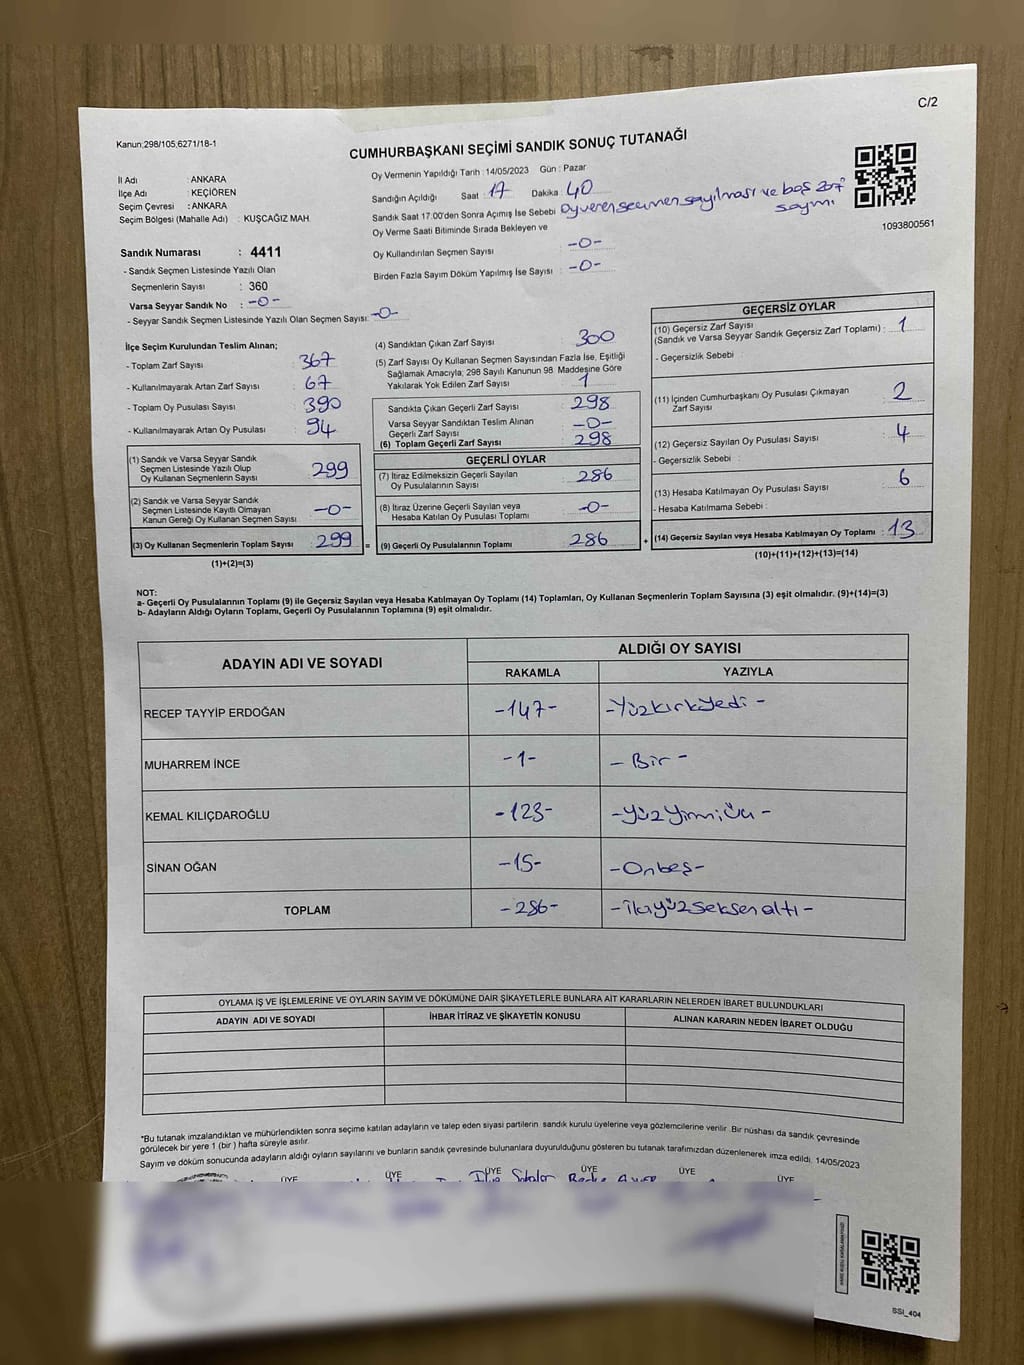 C/2
Kanun;298/105,6271/18-1
CUMHURBAŞKANI SEÇİMİ SANDIK SONUÇ TUTANAĞI
İl Adı : ANKARA
İlçe Adı : KEÇİÖREN
Seçim Çevresi : ANKARA
Seçim Bölgesi (Mahalle Adı) : KUŞCAĞIZ MAH.
Oy Vermenin Yapıldığı Tarih : 14/05/2023 Gün : Pazar
Sandığın Açıldığı Saat 17 Dakika 40
Sandık Saat 17:00'den Sonra Açımış İse Sebebi : Oy veren seçmen sayılması ve boş zarf
sayımı
Oy Verme Saati Bitiminde Sırada Bekleyen ve
Oy Kullandırılan Seçmen Sayısı : -0-
Birden Fazla Sayım Döküm Yapılmış İse Sayısı : -0-
1093800561
Sandık Numarası : 4411
- Sandık Seçmen Listesinde Yazılı Olan
Seçmenlerin Sayısı : 360
Varsa Seyyar Sandık No : -0-
- Seyyar Sandık Seçmen Listesinde Yazılı Olan Seçmen Sayısı: -0-
İlçe Seçim Kurulundan Teslim Alınan;
- Toplam Zarf Sayısı : 367
- Kullanılmayarak Artan Zarf Sayısı : 67
- Toplam Oy Pusulası Sayısı : 390
- Kullanılmayarak Artan Oy Pusulası : 94
(1) Sandık ve Varsa Seyyar Sandık
Seçmen Listesinde Yazılı Olup
Oy Kullanan Seçmenlerin Sayısı : 299
(2) Sandık ve Varsa Seyyar Sandık
Seçmen Listesinde Kayıtlı Olmayan
Kanun Gereği Oy Kullanan Seçmen Sayısı : -0-
(3) Oy Kullanan Seçmenlerin Toplam Sayısı : 299 =
(1)+(2)=(3)
(4) Sandıktan Çıkan Zarf Sayısı : 300
(5) Zarf Sayısı Oy Kullanan Seçmen Sayısından Fazla İse, Eşitliği
Sağlamak Amacıyla; 298 Sayılı Kanunun 98. Maddesine Göre
Yakılarak Yok Edilen Zarf Sayısı : 1
Sandıkta Çıkan Geçerli Zarf Sayısı : 298
Varsa Seyyar Sandıktan Teslim Alınan
Geçerli Zarf Sayısı : -0-
(6) Toplam Geçerli Zarf Sayısı : 298
GEÇERLİ OYLAR
(7) İtiraz Edilmeksizin Geçerli Sayılan
Oy Pusulalarının Sayısı : 286
(8) İtiraz Üzerine Geçerli Sayılan veya
Hesaba Katılan Oy Pusulası Toplamı : -0-
(9) Geçerli Oy Pusulalarının Toplamı : 286 +
GEÇERSİZ OYLAR
(10) Geçersiz Zarf Sayısı
(Sandık ve Varsa Seyyar Sandık Geçersiz Zarf Toplamı) : 1
- Geçersizlik Sebebi
(11) İçinden Cumhurbaşkanı Oy Pusulası Çıkmayan
Zarf Sayısı : 2
(12) Geçersiz Sayılan Oy Pusulası Sayısı : 4
- Geçersizlik Sebebi :
(13) Hesaba Katılmayan Oy Pusulası Sayısı : 6
- Hesaba Katılmama Sebebi :
(14) Geçersiz Sayılan veya Hesaba Katılmayan Oy Toplamı : 13
(10)+(11)+(12)+(13)=(14)
NOT:
a- Geçerli Oy Pusulalarının Toplamı (9) ile Geçersiz Sayılan veya Hesaba Katılmayan Oy Toplamı (14) Toplamları, Oy Kullanan Seçmenlerin Toplam Sayısına (3) eşit olmalıdır. (9)+(14)=(3)
b- Adayların Aldığı Oyların Toplamı, Geçerli Oy Pusulalarının Toplamına (9) eşit olmalıdır.
ADAYIN ADI VE SOYADI ALDIĞI OY SAYISI
RAKAMLA YAZIYLA
RECEP TAYYİP ERDOĞAN -147- -Yüzkırkyedi-
MUHARREM İNCE -1- -Bir-
KEMAL KILIÇDAROĞLU -123- -Yüzyirmiüç-
SİNAN OĞAN -15- -Onbeş-
TOPLAM -286- -İkiyüzseksenaltı-
OYLAMA İŞ VE İŞLEMLERİNE VE OYLARIN SAYIM VE DÖKÜMÜNE DAİR ŞİKAYETLERLE BUNLARA AİT KARARLARIN NELERDEN İBARET BULUNDUKLARI
ADAYIN ADI VE SOYADI İHBAR İTİRAZ VE ŞİKAYETİN KONUSU ALINAN KARARIN NEDEN İBARET OLDUĞU
*Bu tutanak imzalandıktan ve mühürlendikten sonra seçime katılan adayların ve talep eden siyasi partilerin sandık kurulu üyelerine veya gözlemcilerine verilir. Bir nüshası da sandık çevresinde
görülecek bir yere 1 (bir) hafta süreyle asılır.
Sayım ve döküm sonucunda adayların aldığı oyların sayılarını ve bunların sandık çevresinde bulunanlara duyurulduğunu gösteren bu tutanak tarafımızdan düzenlenerek imza edildi. 14/05/2023
ÜYE ÜYE ÜYE ÜYE ÜYE ÜYE
SSI_404